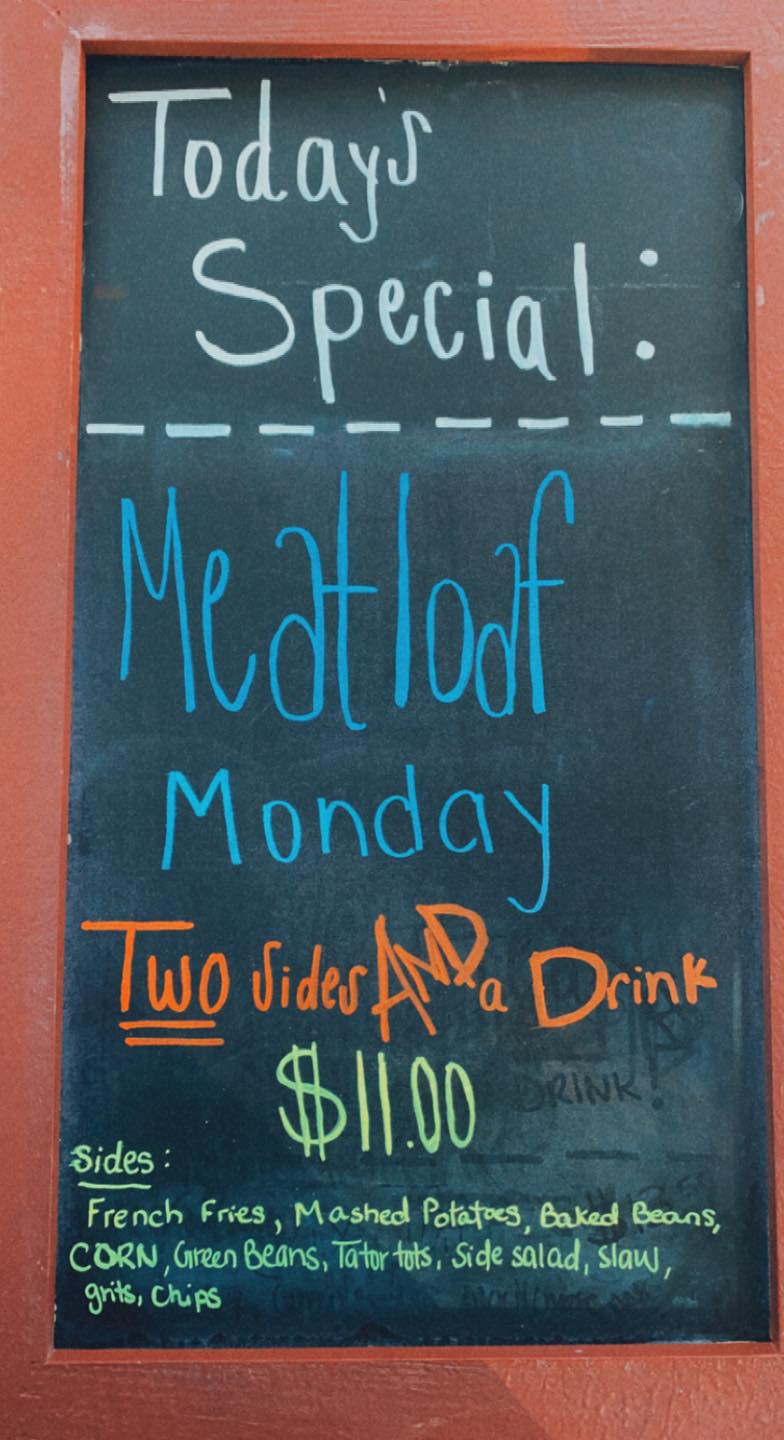 Today's
Special:
Meatloaf
Monday
Two sides AND a Drink
$11.00
DRINK!
Sides:
French Fries, Mashed Potatoes, Baked Beans,
CORN, Green Beans, Tator tots, Side salad, slaw,
grits, Chips